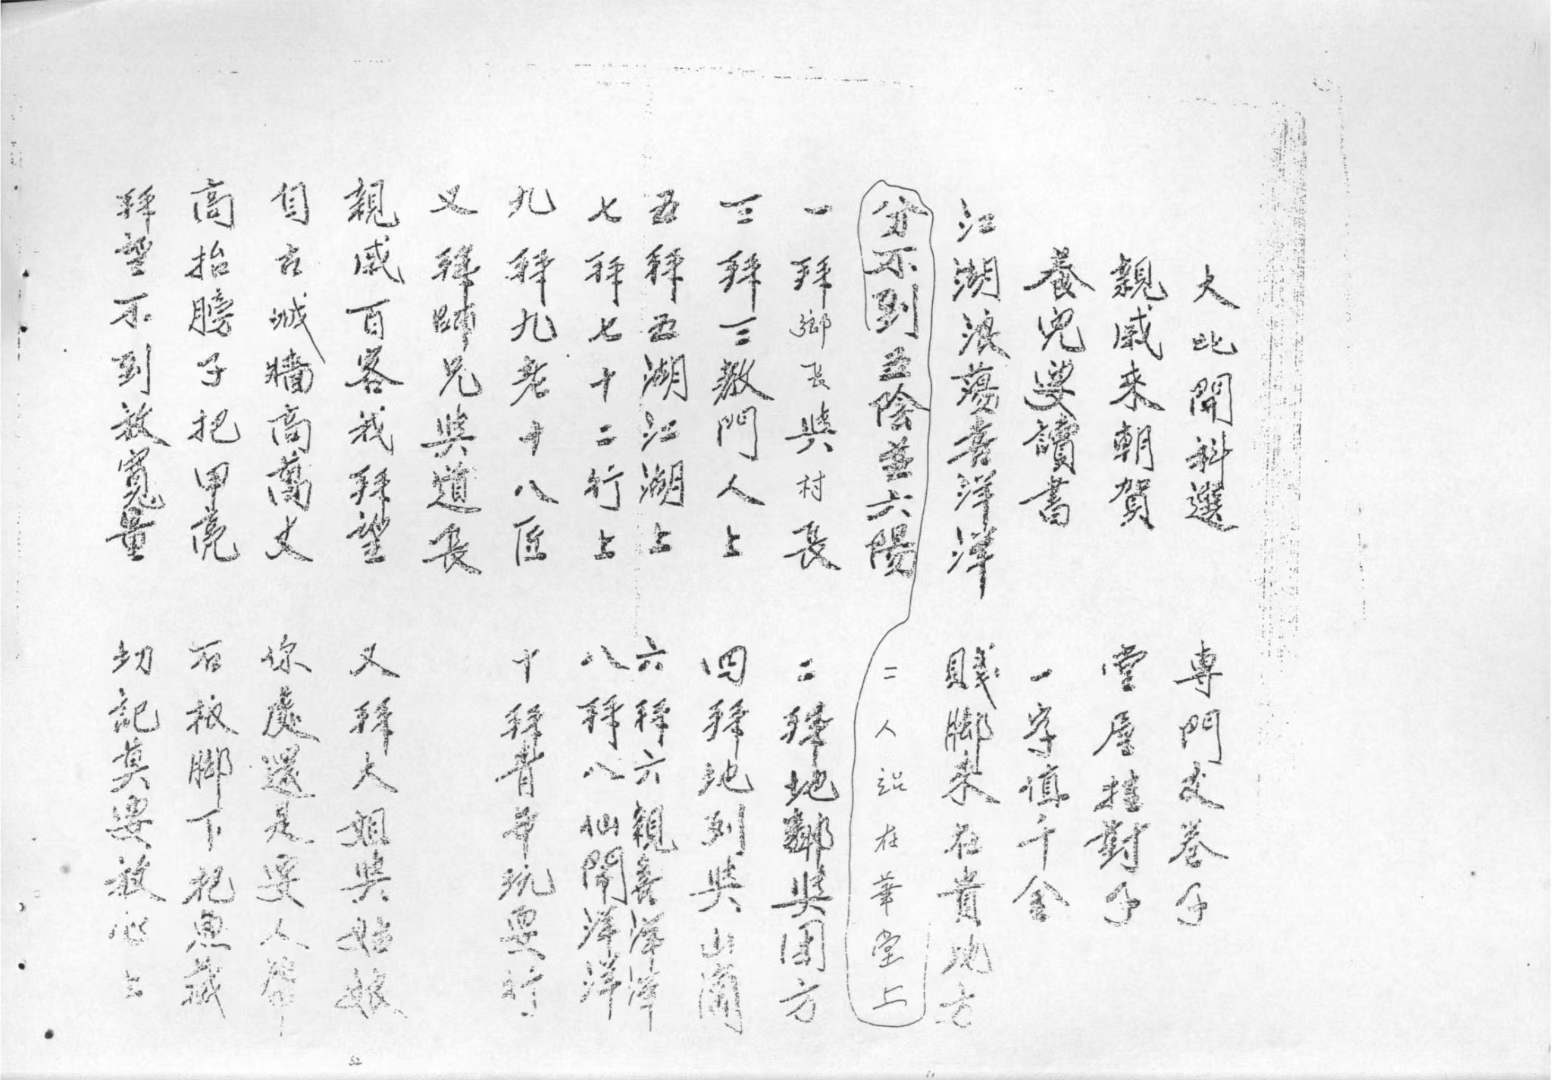 大比開科選 專門交卷子
親戚來朝賀 堂屋掛對子
養兒要讀書 一字值千金
江湖浪蕩喜洋洋 賤腳來在貴地方
分不到五陰並六陽 二人站在華堂上
一拜鄉長與村長 二拜地鄰與團方
三拜三教門人上 四拜地列與山崗
五拜五湖江湖上 六拜六親喜洋洋
七拜七十二行上 八拜八仙鬧洋洋
九拜九老十八匠 十拜昔年玩耍行
又拜師兄與道長
親戚百客我拜望 又拜大姐與姑娘
自古城牆高萬丈 你處還是要人幫
高抬膀子把甲亮 石板腳下把魚藏
拜望不到放寬量 切記莫要放心上
52